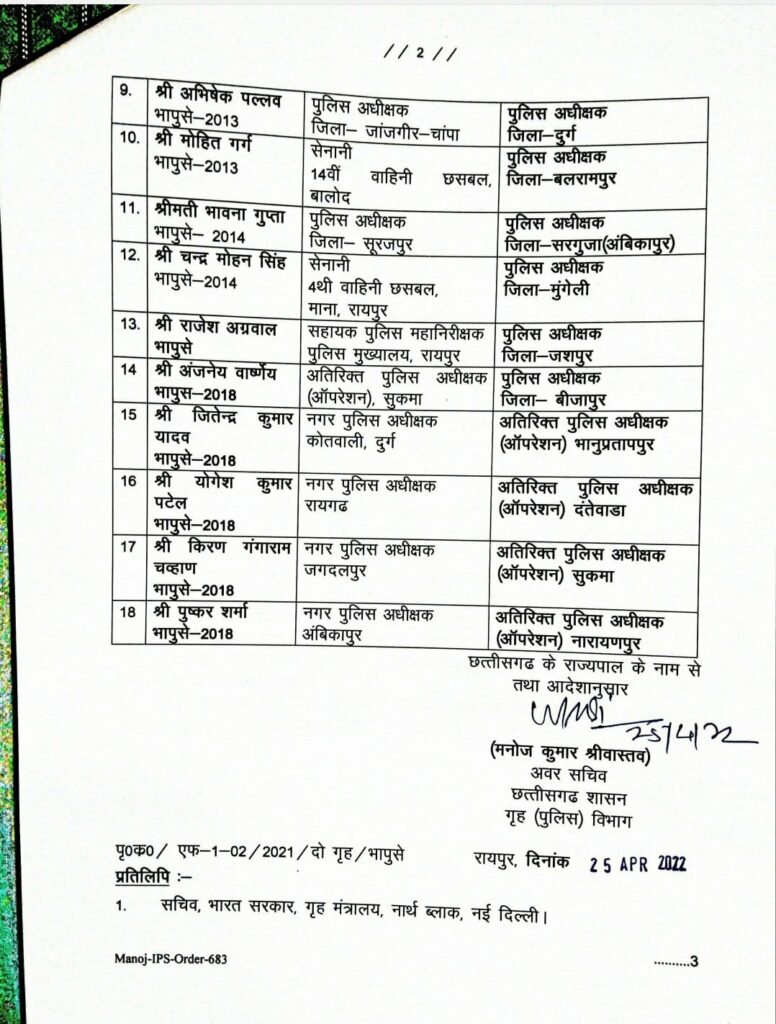 //2//
9. श्री अभिषेक पल्लव
भापुसे–2013
पुलिस अधीक्षक
जिला– जांजगीर-चांपा
पुलिस अधीक्षक
जिला–दुर्ग
10. श्री मोहित गर्ग
भापुसे–2013
सेनानी
14वीं वाहिनी छसबल,
बालोद
पुलिस अधीक्षक
जिला–बलरामपुर
11. श्रीमती भावना गुप्ता
भापुसे– 2014
पुलिस अधीक्षक
जिला– सूरजपुर
पुलिस अधीक्षक
जिला–सरगुजा(अंबिकापुर)
12. श्री चन्द्र मोहन सिंह
भापुसे–2014
सेनानी
4थी वाहिनी छसबल,
माना, रायपुर
पुलिस अधीक्षक
जिला–मुंगेली
13. श्री राजेश अग्रवाल
भापुसे
सहायक पुलिस महानिरीक्षक
पुलिस मुख्यालय, रायपुर
पुलिस अधीक्षक
जिला–जशपुर
14 श्री अंजनेय वार्ष्णेय
भापुस–2018
अतिरिक्त पुलिस अधीक्षक
(ऑपरेशन), सुकमा
पुलिस अधीक्षक
जिला– बीजापुर
15 श्री जितेन्द्र कुमार
यादव
भापुसे–2018
नगर पुलिस अधीक्षक
कोतवाली, दुर्ग
अतिरिक्त पुलिस अधीक्षक
(ऑपरेशन) भानुप्रतापपुर
16 श्री योगेश कुमार
पटेल
भापुसे–2018
नगर पुलिस अधीक्षक
रायगढ
अतिरिक्त पुलिस अधीक्षक
(ऑपरेशन) दंतेवाडा
17 श्री किरण गंगाराम
चव्हाण
भापुसे–2018
नगर पुलिस अधीक्षक
जगदलपुर
अतिरिक्त पुलिस अधीक्षक
(ऑपरेशन) सुकमा
18 श्री पुष्कर शर्मा
भापुसे–2018
नगर पुलिस अधीक्षक
अंबिकापुर
अतिरिक्त पुलिस अधीक्षक
(ऑपरेशन) नारायणपुर
छत्तीसगढ के राज्यपाल के नाम से
तथा आदेशानुसार
25/4/22
(मनोज कुमार श्रीवास्तव)
अवर सचिव
छत्तीसगढ शासन
गृह (पुलिस) विभाग
पृ0क0/ एफ–1–02/2021/दो गृह/भापुसे
रायपुर, दिनांक 25 APR 2022
प्रतिलिपि :–
1. सचिव, भारत सरकार, गृह मंत्रालय, नार्थ ब्लाक, नई दिल्ली।
Manoj-IPS-Order-683
..........3